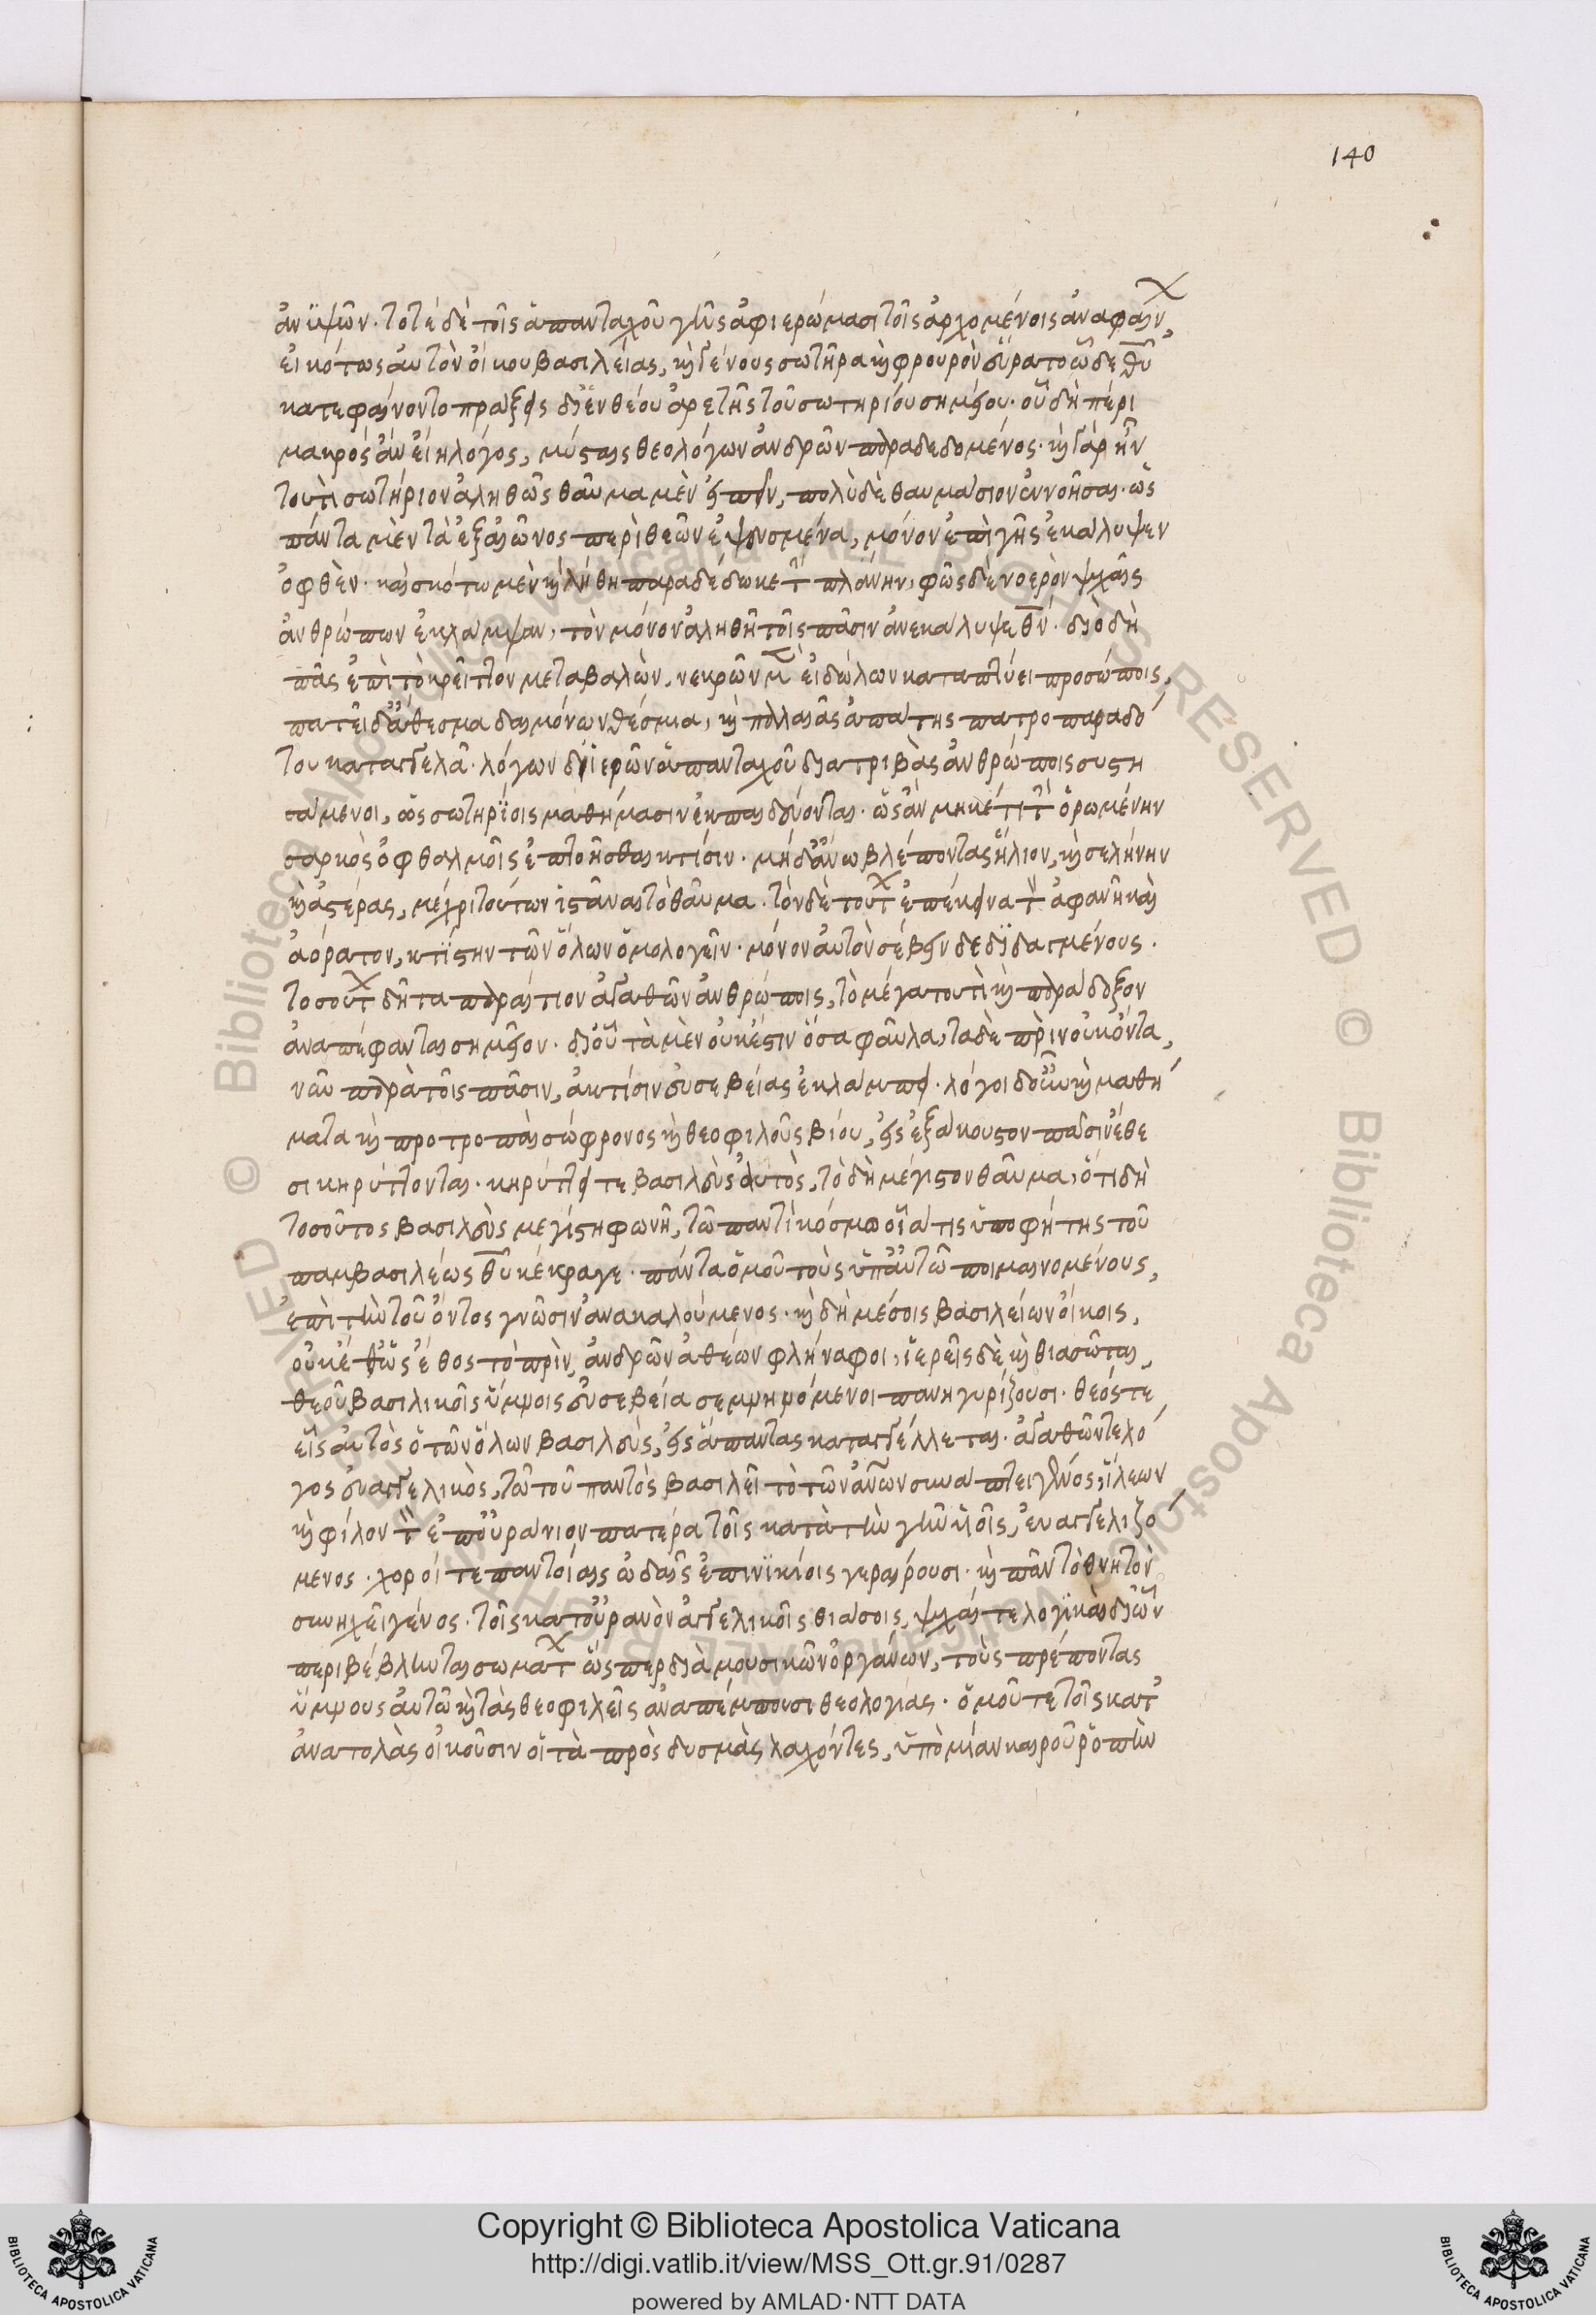 140
ἀνυψῶν· τοτὲ δὲ τοῖς ἁπανταχοῦ γῆς ἀφιερώμασι τοῖς ἀρχομένοις ἀναφαίνων,
εἰκότως αὐτὸν οἴκου βασιλείας, καὶ γένους σωτῆρα καὶ φρουρὸν εὕρατο ᾧ δὲ θῦ
κατεφαίνοντο πράξεις δι' ἐνθέου ἀρετῆς τοῦ σωτηρίου σημείου· οὗ δὴ πέρι
μακρὸς ἂν εἴη λόγος, μύσταις θεολόγων ἀνδρῶν παραδεδομένος· καὶ γὰρ ἦν
τουτὶ σωτήριον ἀληθῶς θαῦμα μὲν εἰπεῖν, πολὺ δὲ θαυμάσιον ἐννοῆσαι· ὡς
πάντα μὲν τὰ ἐξ αἰῶνος περὶ θεῶν ἐψευσμένα, μόνον ἐπὶ γῆς ἐκάλυψεν
ὀφθέν· καὶ σκότω μὲν καὶ λήθη παραδέδωκε τ πλάνην, φῶς δὲ νοερὸν ψχαῖς
ἀνθρώπων ἐκλάμψαν, τὸν μόνον ἀληθῆ τοῖς πᾶσιν ἀνεκάλυψε θν· διὸ δὴ
πᾶς ἐπὶ τὸ κρεῖττον μεταβαλών, νεκρῶν μ εἰδώλων καταπτύει προσώποις,
πατεῖ δ' ἄθεσμα δαιμόνων θέσμια, καὶ παλαιᾶς ἀπάτης πατροπαραδό
του καταγελᾶ· λόγων δ' ἱερῶν ἁπανταχοῦ διατριβὰς ἀνθρώποις συστη
σάμενοι, ὡς σωτηρίοις μαθήμασιν ἐκπαιδεύονται· ὡς ἂν μηκέτι τ ὁρωμένην
σαρκὸς ὀφθαλμοῖς ἐπτοῆσθαι κτίσιν· μὴ δ' ἄνω βλέποντας ἥλιον, καὶ σελήνην
καὶ ἀστέρας, μέχρι τούτων ἱστᾶναι τὸ θαῦμα· τὸν δὲ τούτ ἐπέκεινα τ ἀφανῆ καὶ
ἀόρατον, κτίστην τῶν ὅλων ὁμολογεῖν· μόνον αὐτὸν σέβειν δεδιδαγμένους·
τοσούτ δῆτα παραίτιον ἀγαθῶν ἀνθρώποις, τὸ μέγα τουτὶ καὶ παράδοξον
ἀναπέφανται σημεῖον· δι' οὗ τὰ μὲν οὐκέστιν ὅσα φαῦλα, τὰ δὲ πρὶν οὐκ ὄντα,
νῦν παρὰ τοῖς πᾶσιν, ἀκτῖσιν εὐσεβείας ἐκλάμπει· λόγοι δ' οὖν καὶ μαθή
ματα καὶ προτροπαὶ σώφρονος καὶ θεοφιλοῦς βίου, εἰς ἐξάκουστον πᾶσιν ἔθε
σι κηρύττονται· κηρύττει τε βασιλεὺς αὐτός, τὸ δὴ μέγιστον θαῦμα, ὅτι δὴ
τοσοῦτος βασιλεὺς μεγίστη φωνῆ, τῶ παντὶ κόσμω οἷά τις ὑποφήτης τοῦ
παμβασιλέως θῦ κέκραγε· πάντα ὁμοῦ τοὺς ὑπ' αὐτῶ ποιμαινομένους,
ἐπὶ τὴν τοῦ ὄντος γνῶσιν ἀνακαλούμενος· καὶ δὴ μέσοις βασιλείων οἴκοις,
οὐκέθ' ὡς ἔθος τὸ πρὶν, ἀνδρῶν ἀθέων φλήναφοι, ἱερεῖς δὲ καὶ θιασῶται,
θεοῦ βασιλικοῖς ὕμνοις εὐσεβεία σεμνηνόμενοι πανηγυρίζουσι· θεός τε
εἷς αὐτὸς ὁ τῶν ὅλων βασιλεύς, εἰς ἅπαντας καταγγέλλεται· ἀγαθῶν τε λό
γος εὐαγγελικός, τῶ τοῦ παντὸς βασιλεῖ τὸ τῶν ἀνων συνάπτει γένος, ἵλεων
καὶ φίλον τ ἐπουράνιον πατέρα τοῖς κατὰ τὴν γῆν υἱοῖς, εὐαγγελιζό
μενος· χοροί τε παντοίαις ὠδαῖς ἐπινικίοις γεραίρουσι· καὶ πᾶν τὸ θνητὸν
συνηχεῖ γένος· τοῖς κατ' οὐρανὸν ἀγγελικοῖς θιάσοις, ψχαί τε λογικαὶ δι' ὧν
περιβέβληνται σωμάτ ὥσπερ διὰ μουσικῶν ὀργάνων, τοὺς πρέποντας
ὕμνους αὐτῶ καὶ τὰς θεοφιλεῖς ἀναπέμπουσι θεολογίας· ὁμοῦ τε τοῖς κατ'
ἀνατολὰς οἰκοῦσιν οἱ τὰ πρὸς δυσμὰς λαχόντες, ὑπὸ μίαν καιροῦ ῥοπὴν
© Biblioteca Apostolica Vaticana ALL RIGHTS RESERVED © Biblioteca Apostolica Vaticana ALL RIGHTS RESERVED
Copyright © Biblioteca Apostolica Vaticana
http://digi.vatlib.it/view/MSS_Ott.gr.91/0287
powered by AMLAD·NTT DATA
BIBLIOTECA APOSTOLICA VATICANA
BIBLIOTECA APOSTOLICA VATICANA